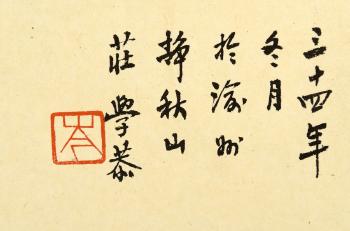 三十四年
冬月
於渝州
静秋山
莊學恭